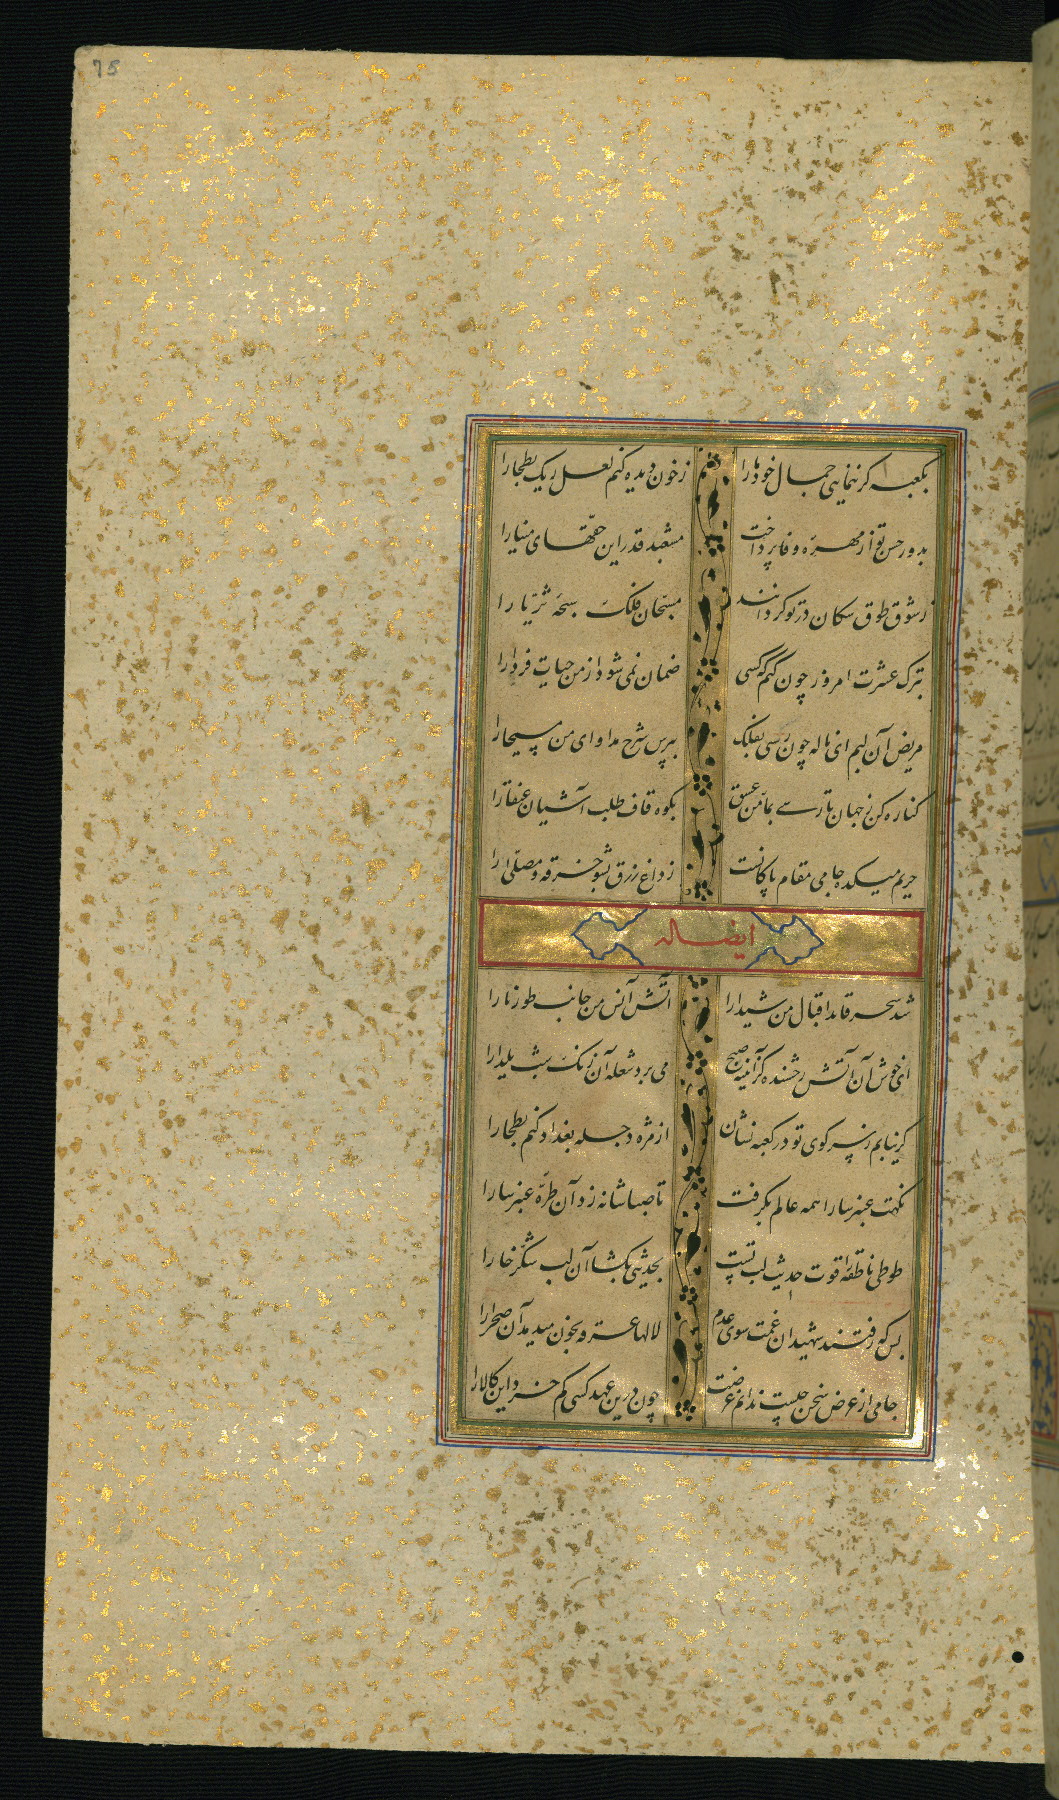 75
بکعبه گر ننمایی جمال خود ما را زخون دیده کنم لعل ریک بطحا را
بدور حسن تو از مهره وفا پرداخت مشعبد قدر این حقهای مینا را
ز شوق طوق سکان درتو کردانند مسبحان فلک سبحه ثریا را
بترک عشرت امروز چون کنم که کسی ضمان نمی شود از من حیات فردا را
مریض آن لبم ای ناله چون رسی بفلک بپرس شرح مداوای من مسیحا را
کناره کن ز جهان تا رسی بمامن عشق بکوه قاف طلب آشیان عنقا را
حریم میکده جامی مقام پاکانست ز داغ زرق بشو خرقه و مصلی را
ایضا له
شد سحر قاید اقبال من شیدا را آتش آنس من جانب طور نارا
ای خوش آن آتش رخشنده کز آئینه صبح می برد شعله آن زنک شب یلدا را
گر نیابم ز سر کوی تو در کعبه نشان از مژه دجله بغداد کنم بطحا را
نکهت عنبر سارا همه عالم بگرفت تا صبا شانه زد آن طره عنبر سا را
طوطی ناطقه را قوت حدیث لب تست بحدیثی بکشا آن لب شکر خا را
بس که رفتند شهیدان غمت سوی عدم لالها غرقه بخون میدمد آن صحرا را
جامی از عرض سخن چیست ندانم غرضت چون درین عهد کسی کم خرد این کالا را